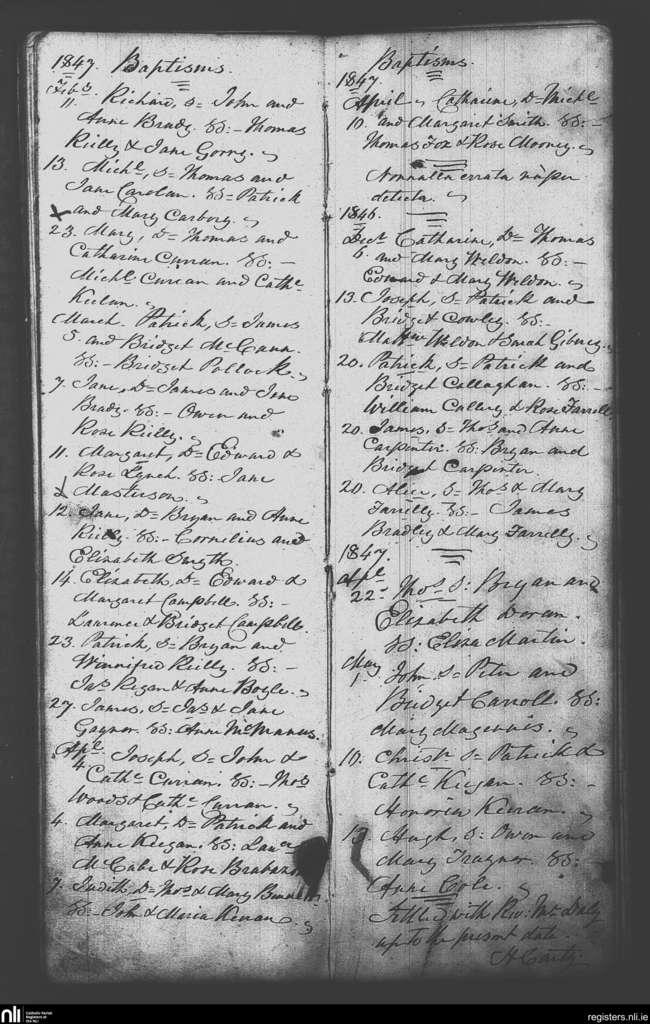 1847. Baptisms.
Feby.
11. Richard, S= John and
Anne Brady. SS:- Thomas
Reilly & Jane Gorry.
13. Michl, S= Thomas and
Jane Carolan. SS= Patrick
and Mary
23. Mary, D= Thomas and
Catharine Curran. SS:-
Michl Curran and Cathe
March. Patrick, S= James
5. and Bridget McCann.
SS:- Bridget Pollock.
7. Jane, D= James and Jane
Brady. SS:- Owen and
Rose Reilly.
11. Margaret, D= Edward &
Rose Lynch. SS: Jane
Masterson.
12. Jane, D= Bryan and Anne
Reilly. SS:- Cornelius and
Elizabeth Smyth.
14. Elizabeth, D= Edward &
Margaret Campbell. SS:-
Lawrence & Bridget Campbell.
23. Patrick, S= Bryan and
Winnifred Reilly. SS:-
Jas Regan & Anne Boyle.
27. James, S= Jas & Jane
Gaynor. SS: Anne McManus.
Apl. Joseph, S= John &
4. Cathe Curran. SS:- Thos
Woods & Cathe Curran.
4. Margaret, D= Patrick and
Anne Keegan. SS:
McCabe & Rose Brabazon
7. Judith, D= Thos & Mary
SS- John & Maria Kiernan
Baptisms.
1847.
April Catharine, D= Michl
10. and Margaret Smith. SS:-
Thomas Fox & Rose Mooney.
Nonnulla errata nuper
detecta.
1846.
Decr Catharine, D= Thomas
6. and Mary Weldon. SS:-
Edward & Mary Weldon.
13. Joseph, S= Patrick and
Bridget Cowley. SS:-
Matthw Weldon & Sarah Gibney.
20. Patrick, S= Patrick and
Bridget Callaghan. SS:-
William Callery & Rose Farrell
20. James, S= Thos and Anne
Carpenter. SS: Bryan and
Bridget Carpenter.
20. Alice, S= Thos & Mary
Farrelly. SS:- James
Bradley & Mary Farrelly.
1847.
Apl.
22. Thos S: Bryan and
Elizabeth Doran.
SS: Eliza Martin.
May
1. John S= Peter and
Bridget Carroll. SS:
Mary Magennis.
10. Christr S= Patrick &
Cathe Keegan. SS:-
Honoria Kiernan.
13. Hugh, S: Owen and
Mary Traynor. SS:-
Anne Cole.
Settled with Rev: Mr Daly
up to the present date.
nli
Catholic Parish
Registers at
the NLI
registers.nli.ie